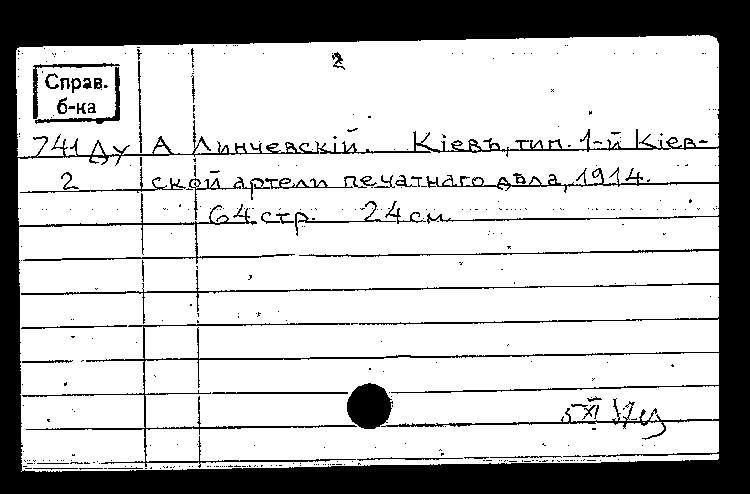 2
Справ.
б-ка
741 Ду А Линчевскій. Кіевъ, тип. 1-й Кіев-
2 ской артели печатнаго дѣла, 1914.
64 стр. 24 см.
5 XI